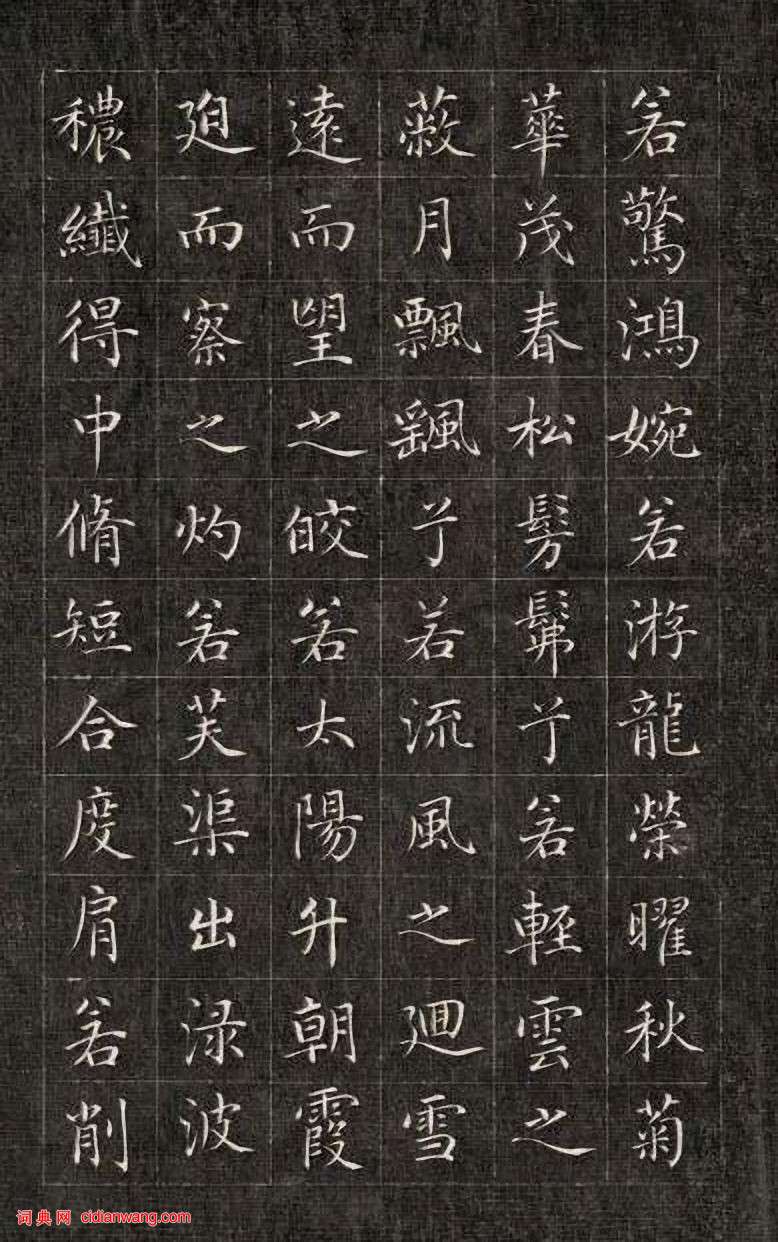 若驚鴻婉若游龍榮曜秋菊
華茂春松髣髴兮若輕雲之
蔽月飄颻兮若流風之迴雪
遠而望之皎若太陽升朝霞
迫而察之灼若芙渠出淥波
穠纖得中脩短合度肩若削
词典网 cidianwang.com